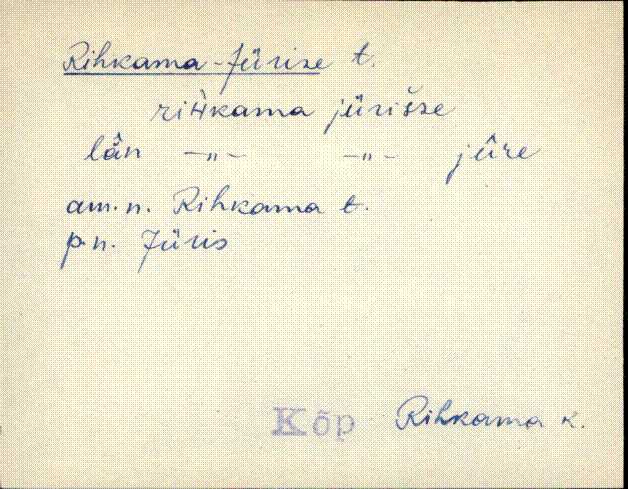 Rihkama-Jürise t.
rihkama jürišse
lǟn -"- -"- jûre
am.n. Rihkama t.
p.n. Jüris
Kõp Rihkama k.